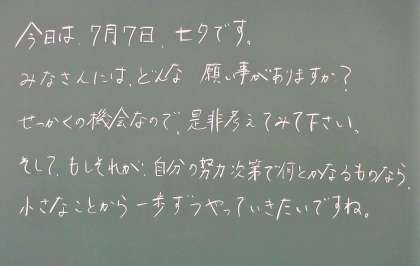 今日は、7月7日、七夕です。
みなさんには、どんな 願い事がありますか?
せっかくの機会なので、是非考えてみて下さい。
そして、もしそれが、自分の努力次第で何とかなるものなら、
小さなことから一歩ずつやっていきたいですね。